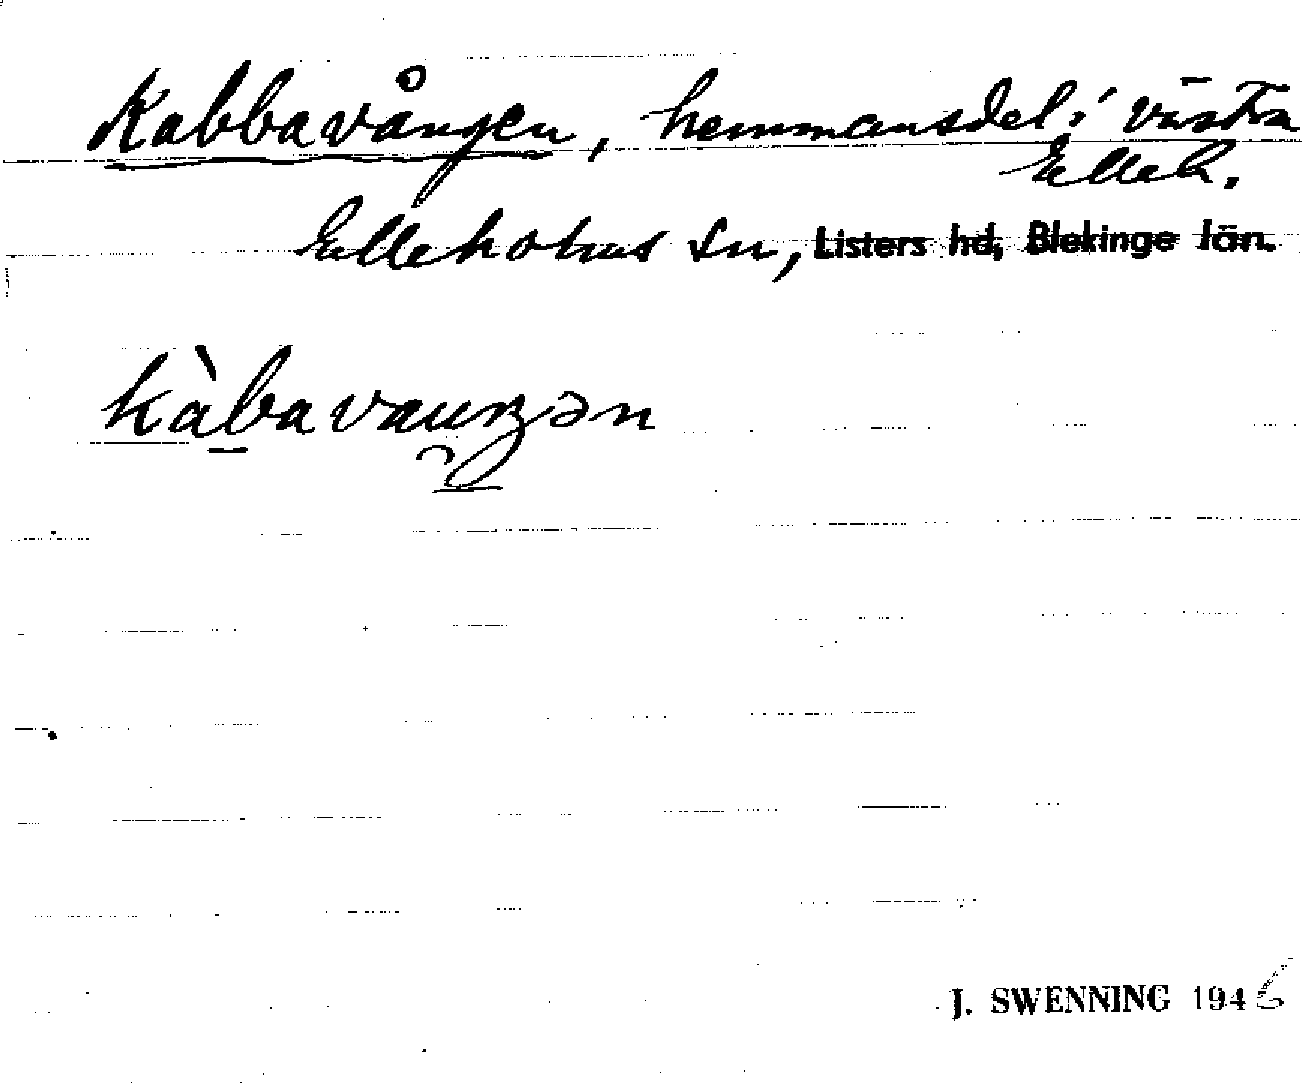 Kabbavången, hemmansdel i västra
Elleh.
Elleholms sn, Listers hd, Blekinge län.
kàbavauŋən
J. SWENNING 1946